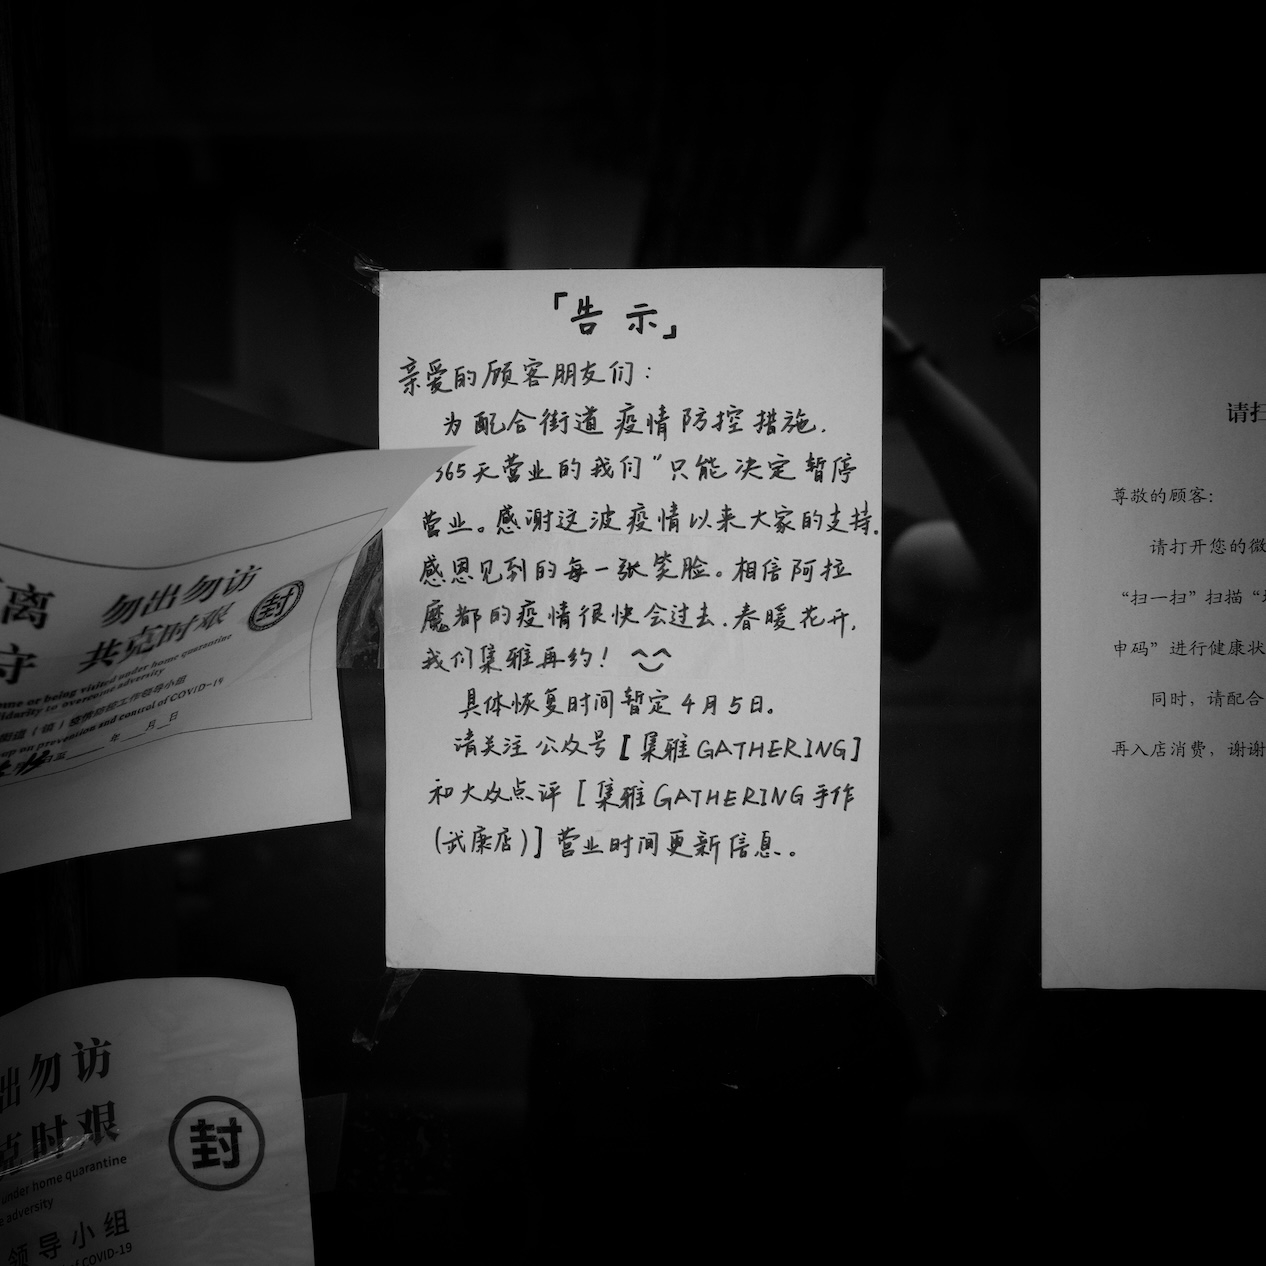 「告示」
亲爱的顾客朋友们：
为配合街道疫情防控措施.
365天营业的我们"只能决定暂停
营业。感谢这波疫情以来大家的支持.
感恩见到的每一张笑脸。相信阿拉
魔都的疫情很快会过去.春暖花开,
我们集雅再约！
具体恢复时间暂定4月5日。
请关注公众号[集雅GATHERING]
和大众点评[集雅GATHERING手作
(武康店)]营业时间更新信息。
离 勿出勿访
守 共克时艰
封
ome or being visited under home quarantine
lidarity to overcome adversity
街道（镇）疫情防控工作领导小组
oup on prevention and control of COVID-19
年 月 日
出勿访
克时艰
封
under home quarantine
e adversity
领导小组
of COVID-19
请扫
尊敬的顾客：
请打开您的微
“扫一扫”扫描“
申码”进行健康状
同时，请配合
再入店消费，谢谢